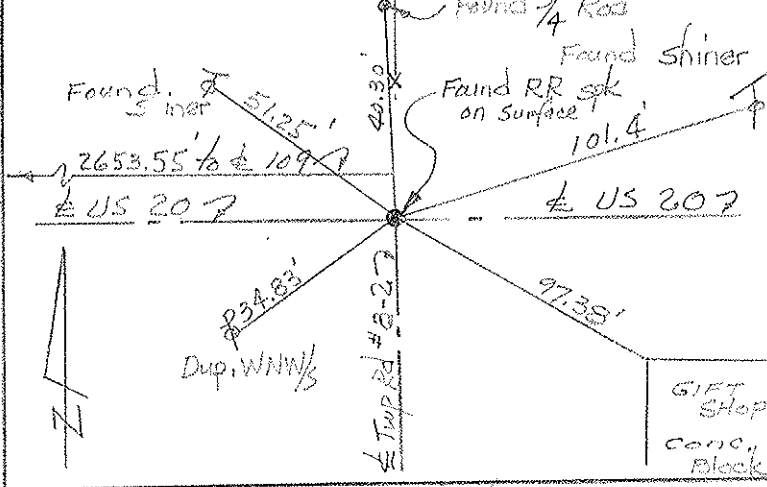 Found 3/4 Rod
Found Shiner
Found
51.25'
40.30'
Found RR spk
on Surface
101.4'
2653.55' to ℄ 109
℄ US 20
℄ US 20
34.83'
97.38'
Dup. WNW/S
℄ Twp Rd # 8-2
GIFT
SHOP
Conc.
Block
N